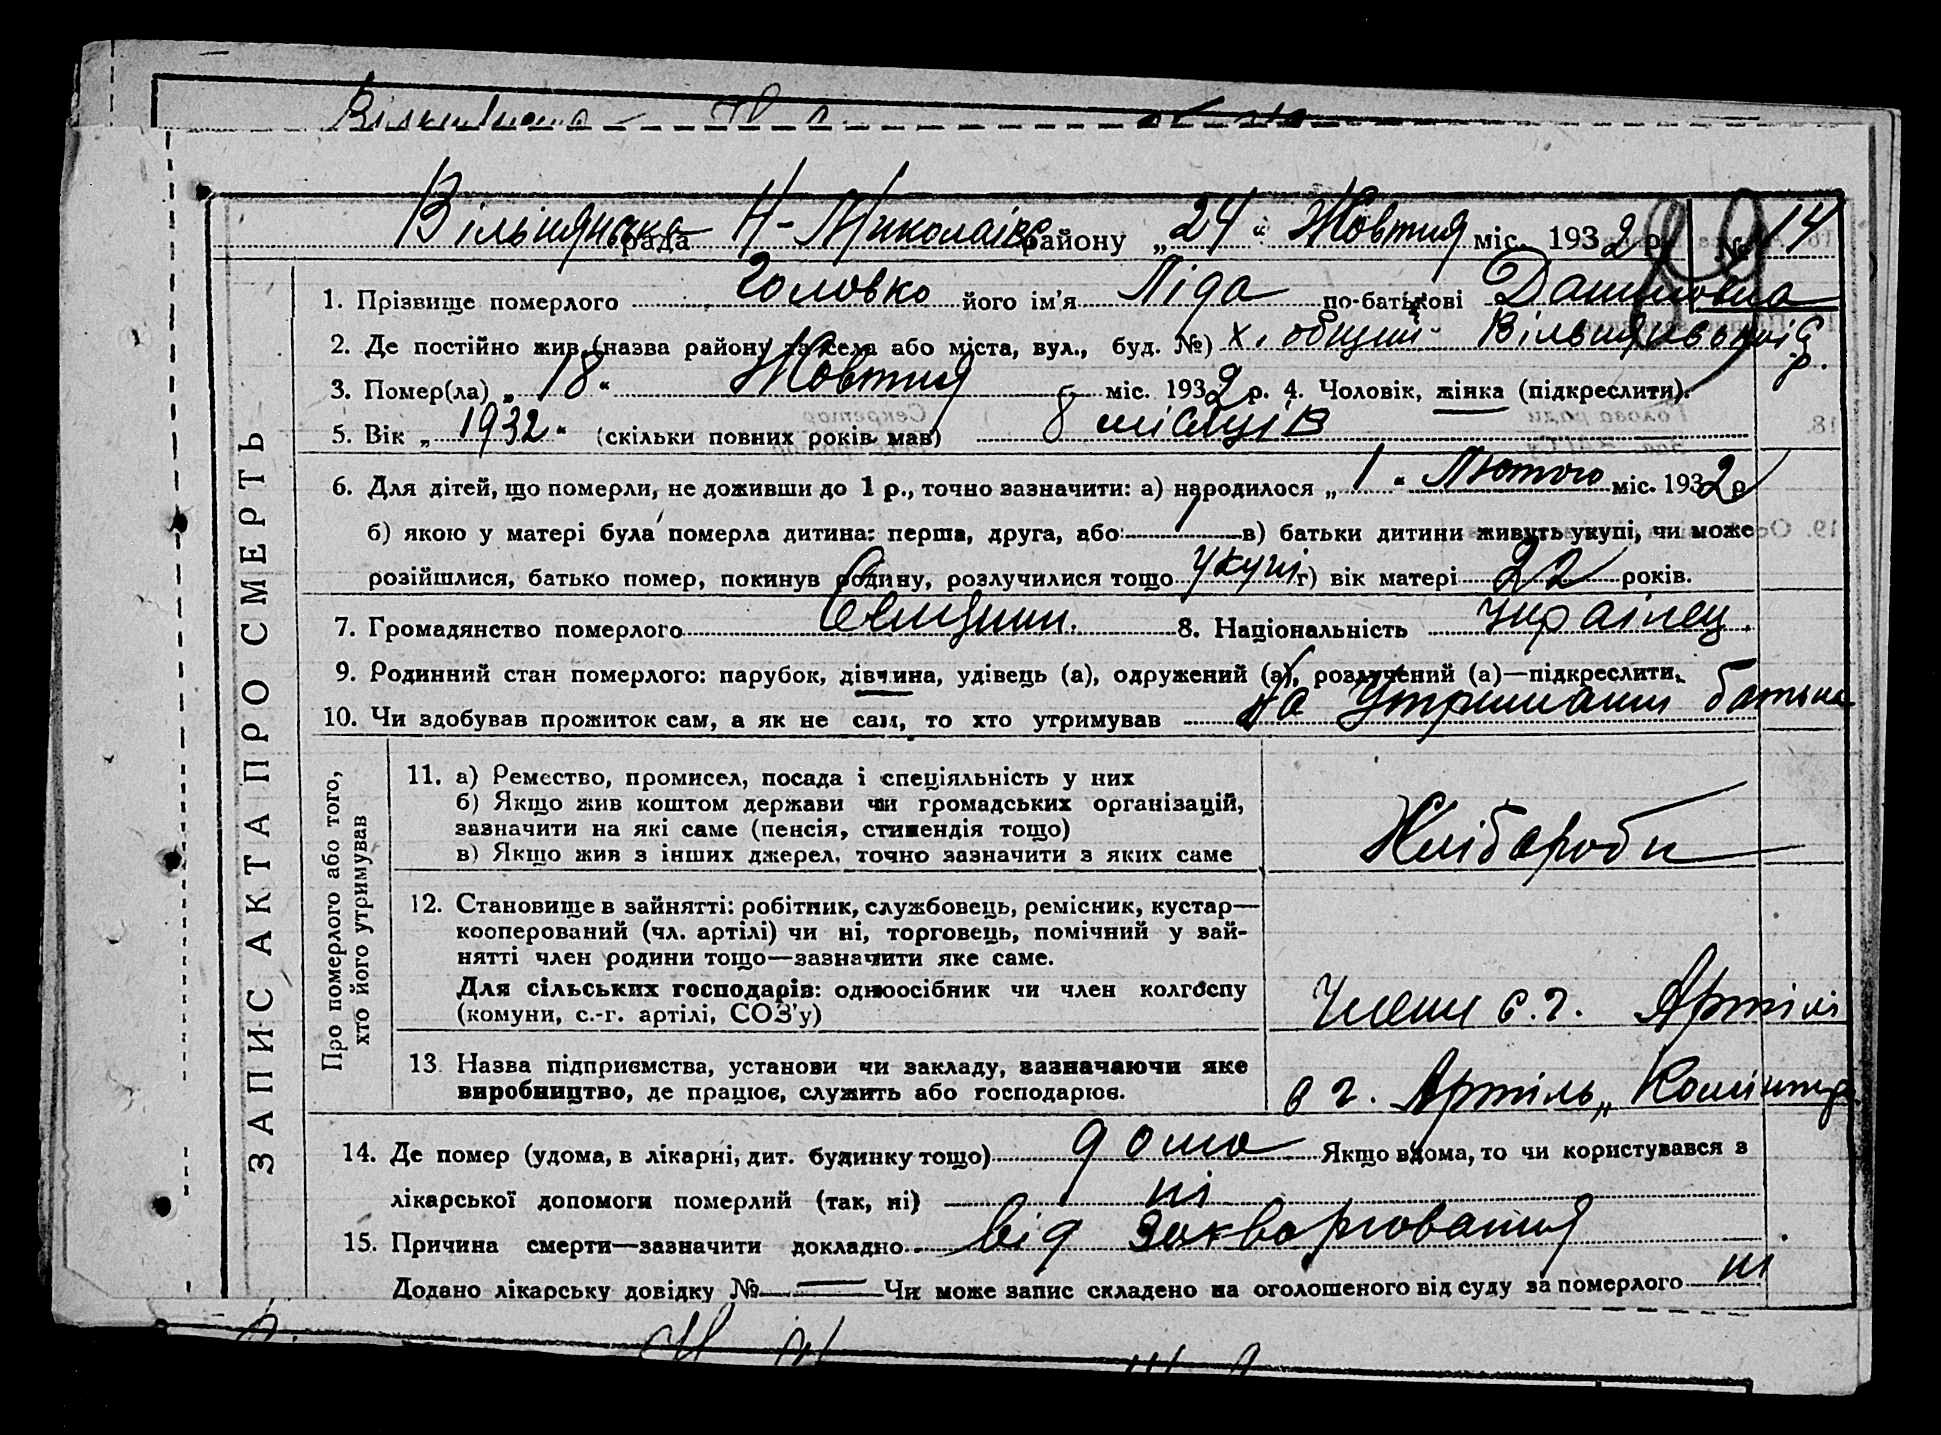 ЗАПИС АКТА ПРО СМЕРТЬ
Вільнянська рада Н-Миколаівс району „24“ Жовтня міс. 1932 р. № 14
89
1. Прізвище померлого Головко його ім'я Ліда по-батькові Даниловна
2. Де постійно жив (назва району та села або міста, вул., буд. №) х.
3. Помер(ла) „18“ Жовтня міс. 1932 р. 4. Чоловік, жінка (підкреслити).
5. Вік „1932“ (скільки повних років мав) 8 місяців
6. Для дітей, що померли, не доживши до 1 р., точно зазначити: а) народилося „1“ Лютого міс. 1932 р
б) якою у матері була померла дитина: перша, друга, або в) батьки дитини живуть укупі, чи може
розійшлися, батько помер, покинув родину, розлучилися тощо укупі г) вік матері 22 років.
7. Громадянство померлого 8. Національність Украінец.
9. Родинний стан померлого: парубок, дівчина, удівець (а), одружений (а), розлучений (а)—підкреслити.
10. Чи здобував прожиток сам, а як не сам, то хто утримував на утриманні батька
Про померлого або того,
хто його утримував
11. а) Ремество, промисел, посада і спеціяльність у них
б) Якщо жив коштом держави чи громадських організацій,
зазначити на які саме (пенсія, стипендія тощо)
в) Якщо жив з інших джерел, точно зазначити з яких саме
Хліброби
12. Становище в зайнятті: робітник, службовець, ремісник, кустар—
кооперований (чл. артілі) чи ні, торговець, помічний у зай-
нятті член родини тощо—зазначити яке саме.
Для сільських господарів: одноосібник чи член колгоспу
(комуни, с.-г. артілі, СОЗ'у)
Члени с.г. Артілі
13. Назва підприємства, установи чи закладу, зазначаючи яке
виробництво, де працює, служить або господарює.
с г. Артіль „Комінтер
14. Де помер (удома, в лікарні, дит. будинку тощо) дома Якщо вдома, то чи користувався з
лікарської допомоги померлий (так, ні) ні
15. Причина смерти—зазначити докладно від
Додано лікарську довідку № — Чи може запис складено на оголошеного від суду за померлого ні